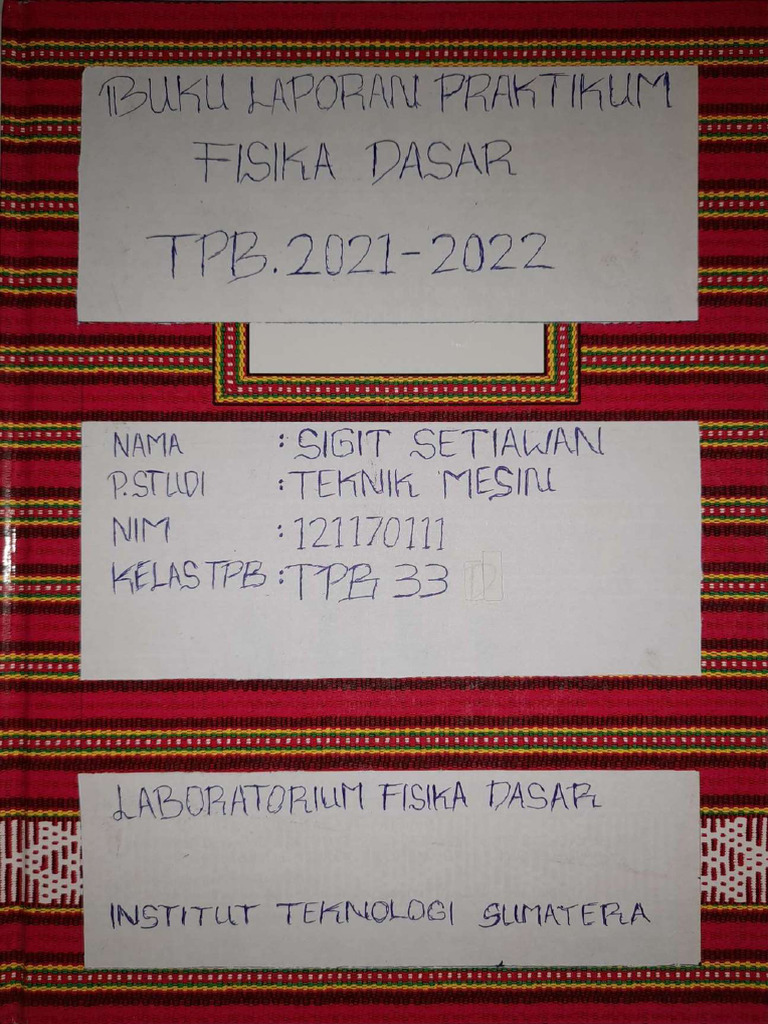 BUKU LAPORAN PRAKTIKUM
FISIKA DASAR
TPB.2021-2022
NAMA : SIGIT SETIAWAN
P.STUDI : TEKNIK MESIN
NIM : 121170111
KELAS TPB : TPB 33
LABORATORIUM FISIKA DASAR
INSTITUT TEKNOLOGI SUMATERA